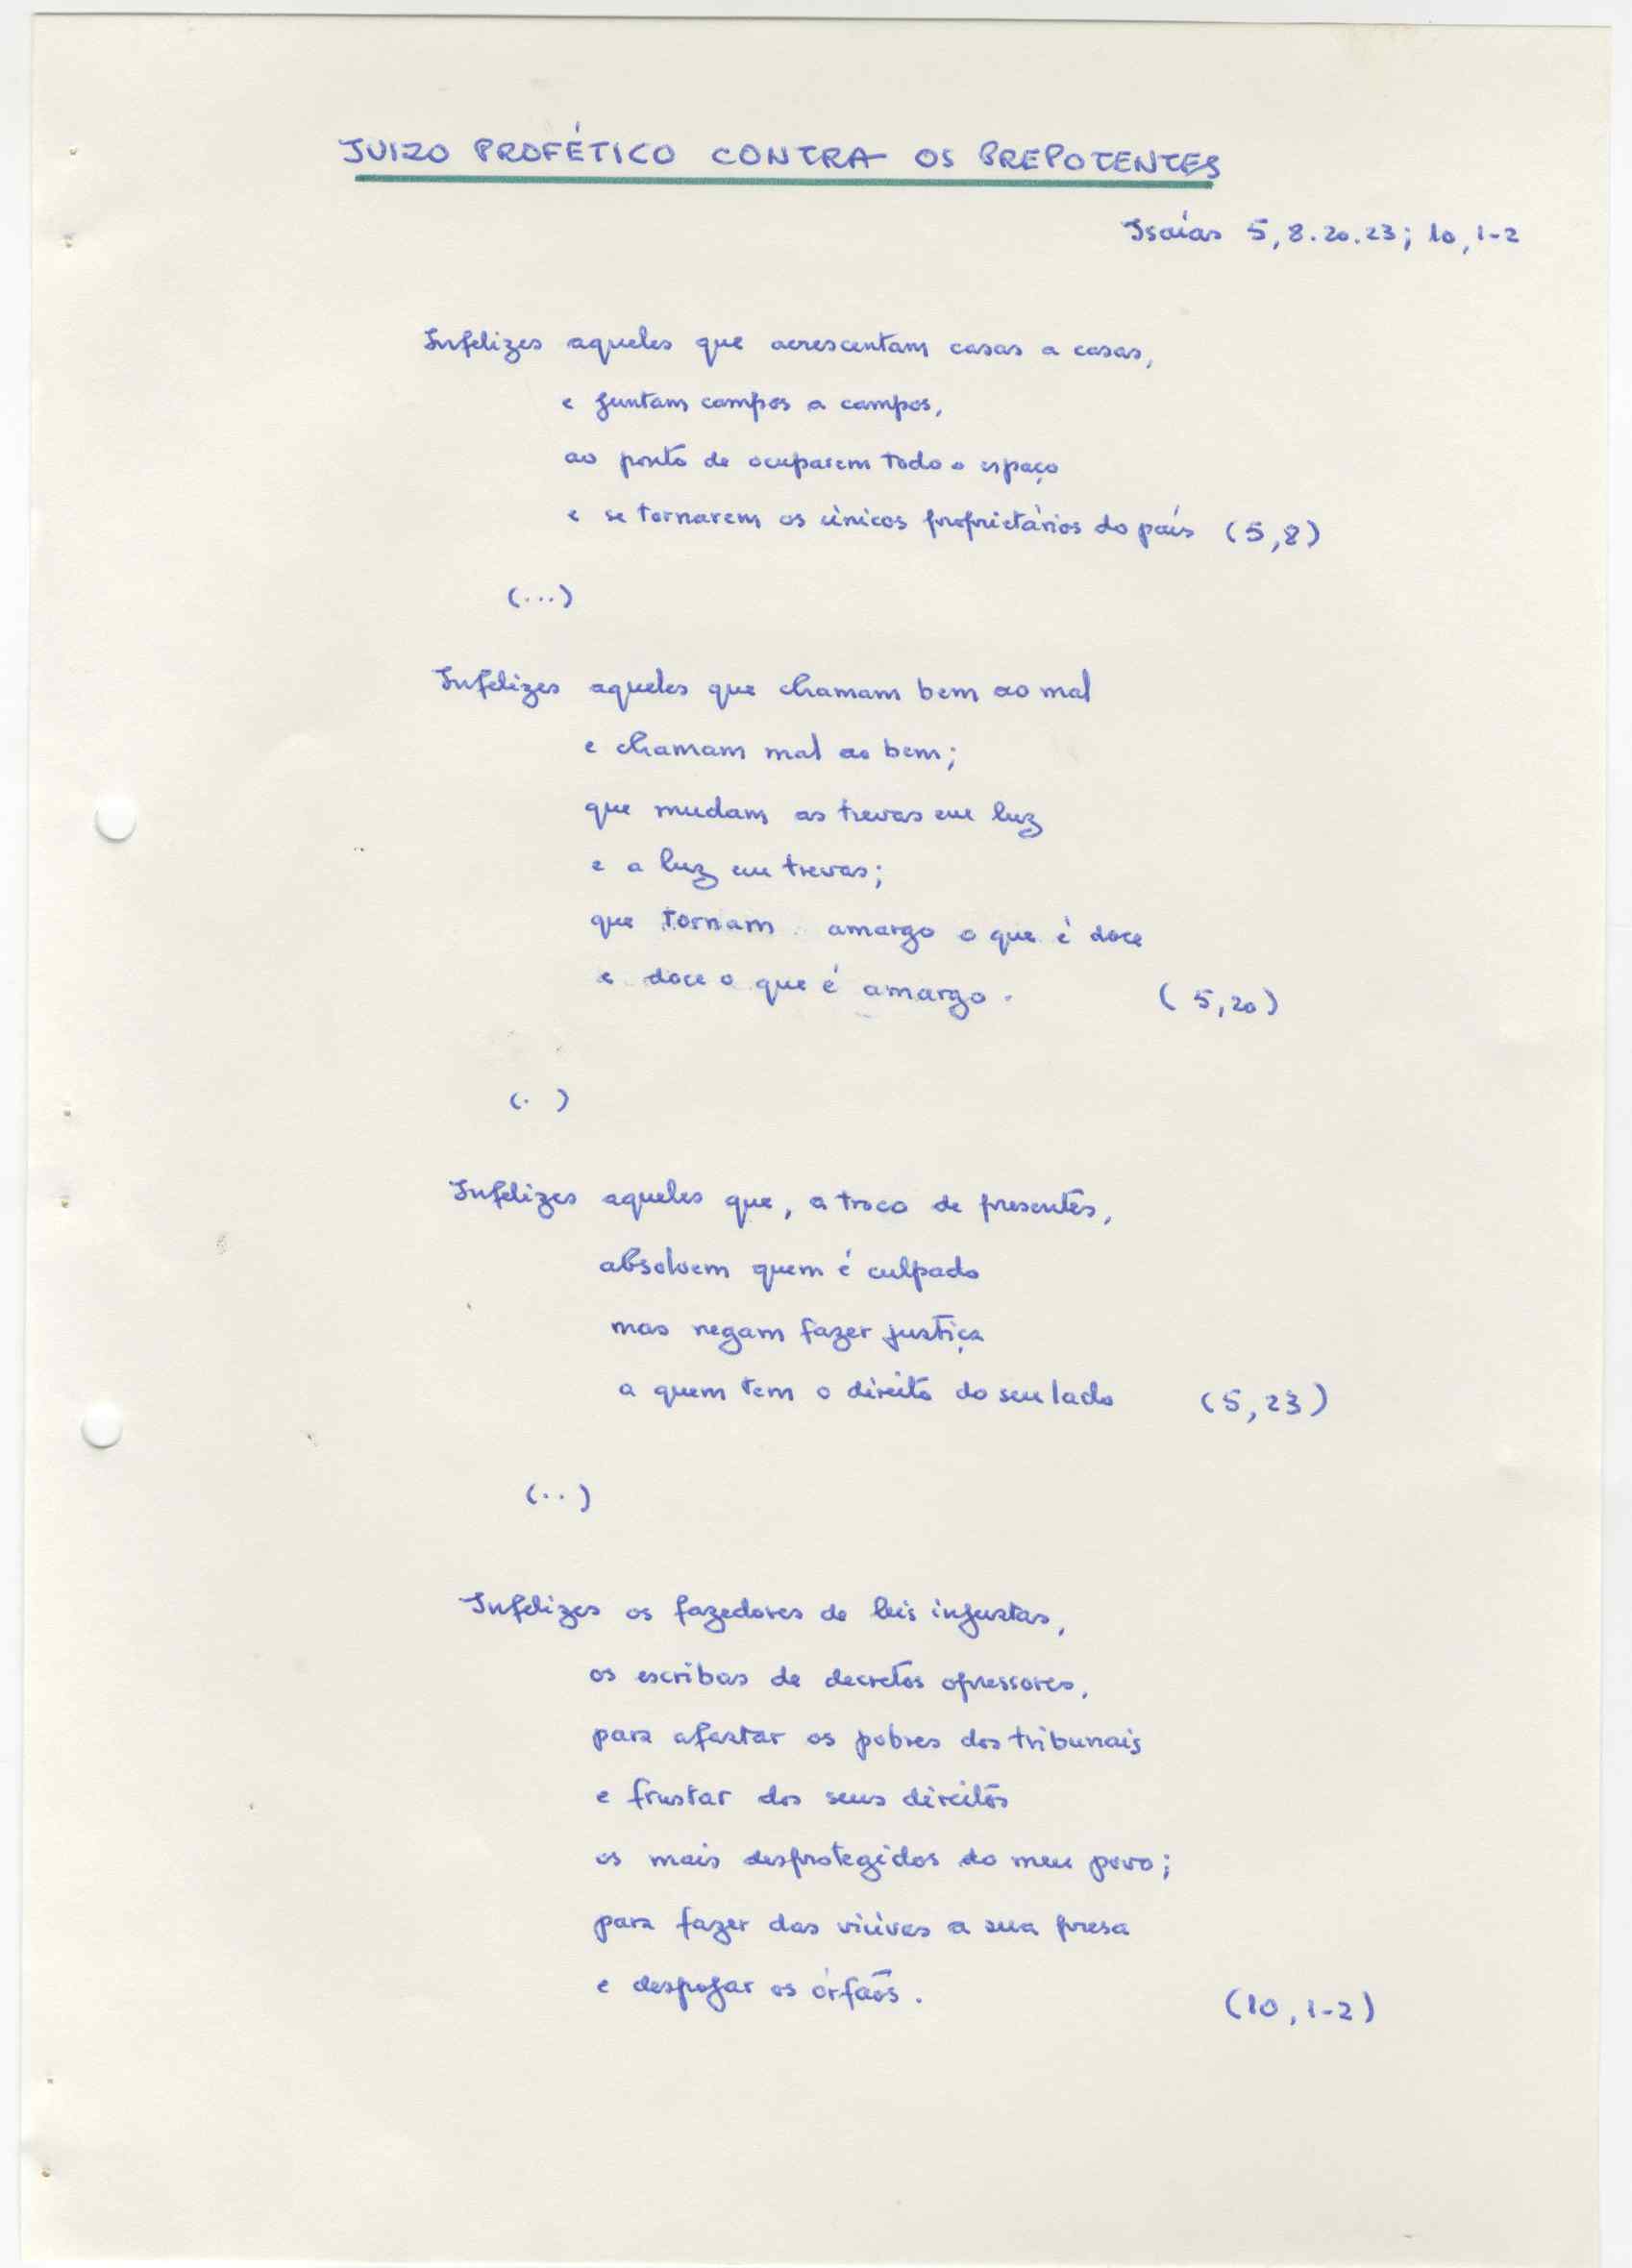 JUIZO PROFÉTICO CONTRA OS PREPOTENTES
Isaías 5, 8.20.23; 10, 1-2
Infelizes aqueles que acrescentam casas a casas,
e juntam campos a campos,
ao ponto de ocuparem todo o espaço
e se tornarem os únicos proprietários do país (5,8)
(...)
Infelizes aqueles que chamam bem ao mal
e chamam mal ao bem;
que mudam as trevas em luz
e a luz em trevas;
que tornam amargo o que é doce
e doce o que é amargo. (5,20)
(. )
Infelizes aqueles que, a troco de presentes,
absolvem quem é culpado
mas negam fazer justiça
a quem tem o direito do seu lado (5,23)
(..)
Infelizes os fazedores de leis injustas,
os escribas de decretos opressores,
para afastar os pobres dos tribunais
e frustar dos seus direitos
os mais desprotegidos do meu povo;
para fazer das viúvas a sua presa
e despojar os órfãos. (10, 1-2)